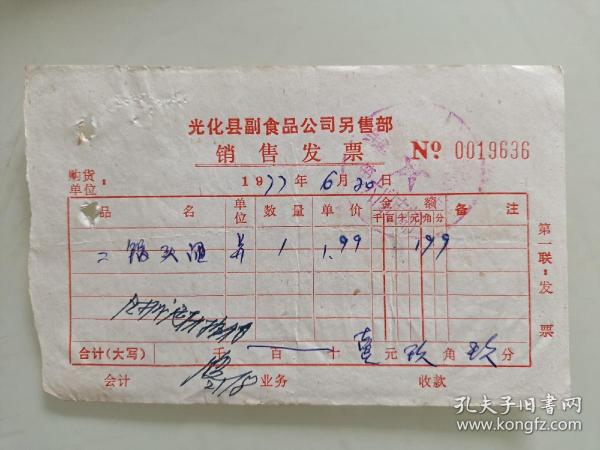 光化县副食品公司另售部
销售发票 № 0019636
购货单位： 1977年6月20日
品名 单位 数量 单价 金额 千百十元角分 备注
二锅头酒 1 1.99 199
合计(大写) 千 百 十壹元玖角玖分
会计 业务 收款
第一联：发票
孔夫子旧书网
www.kongfz.com